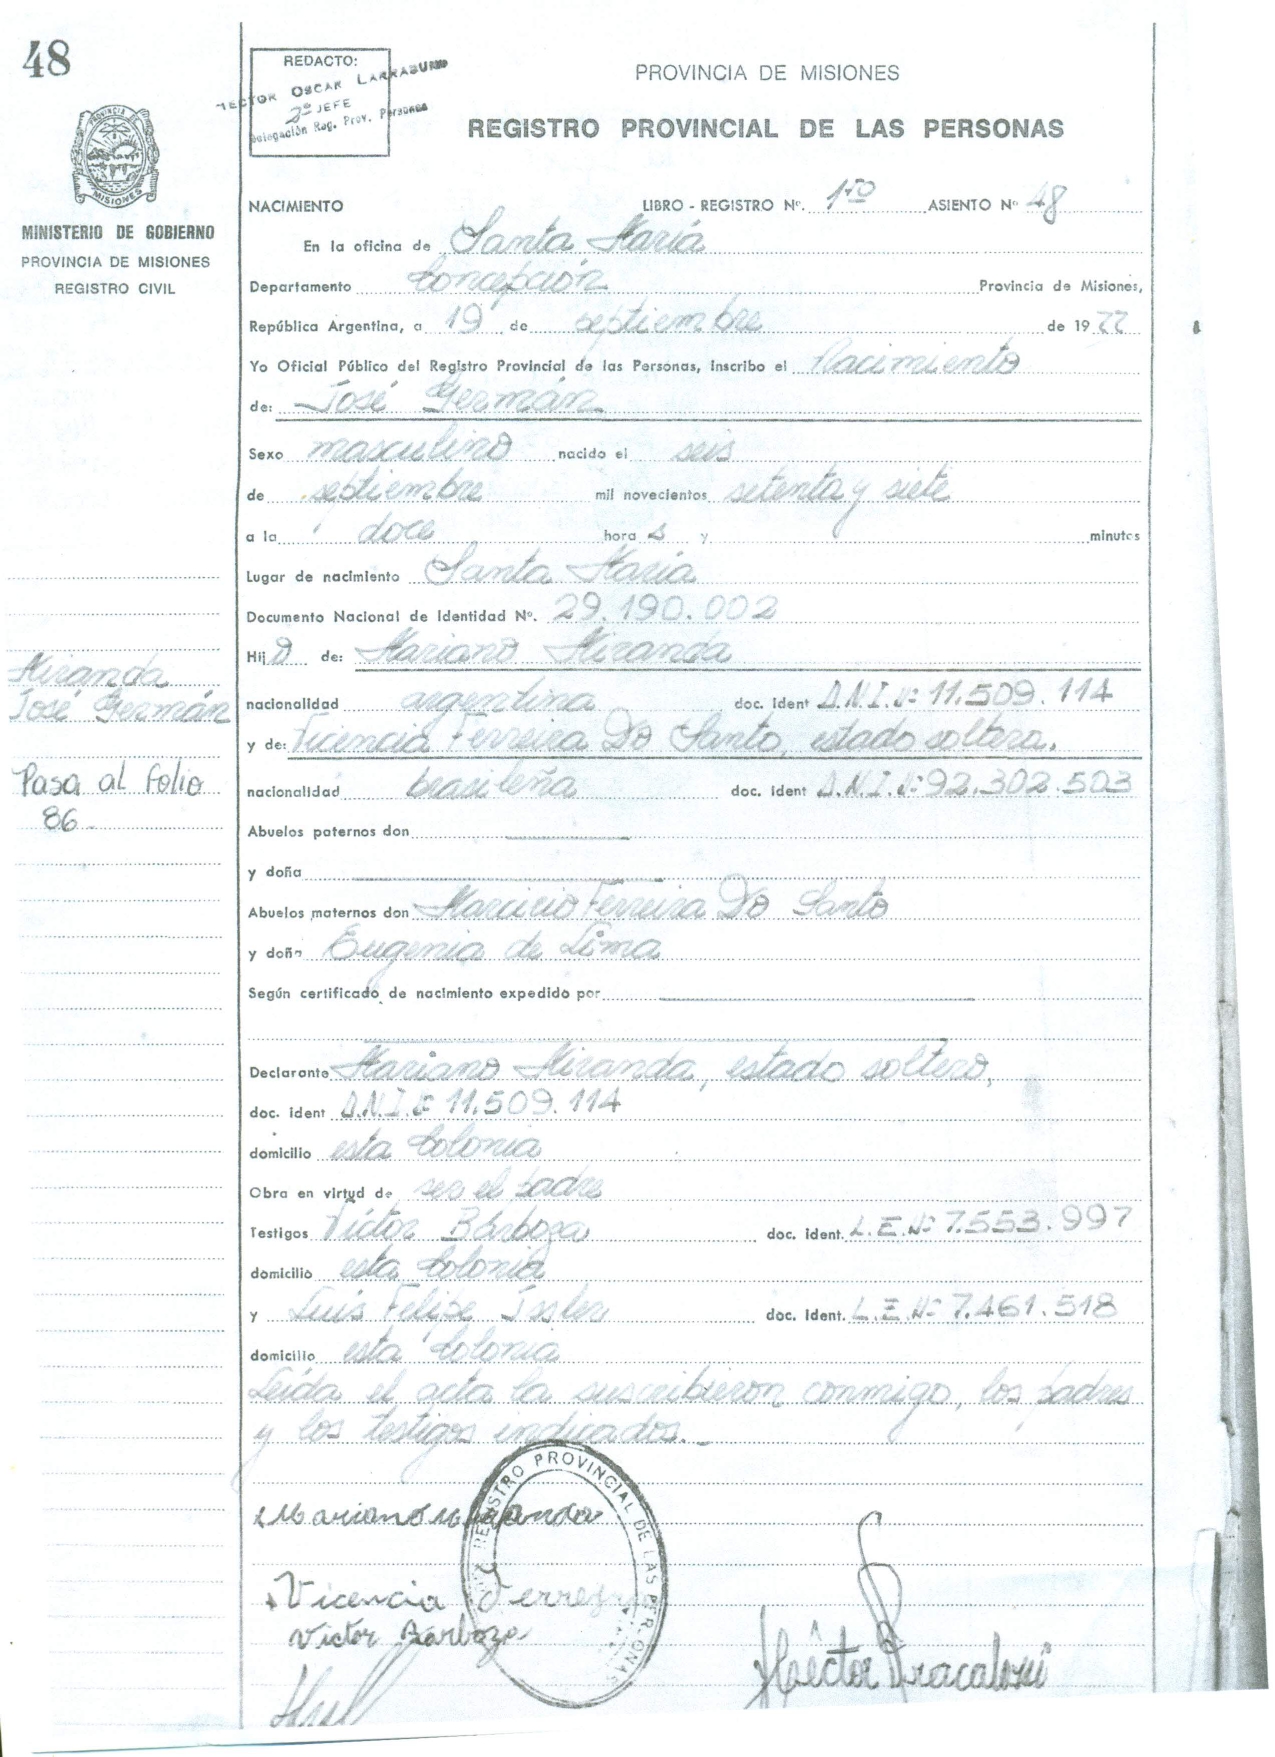 48
REDACTO:
HECTOR OSCAR LARRABURU
2º JEFE
Delegación Reg. Prov. Personas
PROVINCIA DE MISIONES
REGISTRO PROVINCIAL DE LAS PERSONAS
PROVINCIA DE
MISIONES
MINISTERIO DE GOBIERNO
PROVINCIA DE MISIONES
REGISTRO CIVIL
NACIMIENTO LIBRO - REGISTRO Nº. 1ro ASIENTO Nº 48
En la oficina de Santa María
Departamento Concepción Provincia de Misiones,
República Argentina, a 19 de septiembre de 1977
Yo Oficial Público del Registro Provincial de las Personas, inscribo el Nacimiento
de: José Germán
Sexo masculino nacido el seis
de septiembre mil novecientos setenta y siete
a la doce hora s y minutos
Lugar de nacimiento Santa María
Documento Nacional de Identidad Nº. 29.190.002
Hijo de: Mariano Miranda
nacionalidad argentina doc. ident D.N.I.Nº 11.509.114
y de: Vicencia Ferreira Do Santo, estado soltera.
nacionalidad brasileña doc. ident D.N.I.Nº 92.302.503
Abuelos paternos don
y doña
Abuelos maternos don Marcicio Ferreira Do Santo
y doña Eugenia de Lima
Según certificado de nacimiento expedido por
Declarante Mariano Miranda, estado soltero,
doc. ident D.N.I.Nº 11.509.114
domicilio esta Colonia
Obra en virtud de ser el padre
Testigos Víctor Bárboza doc. ident. L.E.Nº 7.553.997
domicilio esta Colonia
y Luis Felipe Issler doc. ident. L.E.Nº 7.461.518
domicilio esta Colonia
Leída el acta la suscribieron conmigo, los padres
y los testigos indicados.-
Miranda
José Germán
Pasa al folio
86-
REGISTRO PROVINCIAL DE LAS PERSONAS
Mariano Miranda
Vicencia Ferreyra
Victor Barboza
Héctor